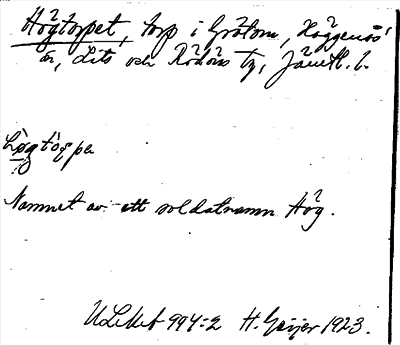 Högtorpet, torp i Grötom, Häggenås'
sn, Lits och Rödöns tg, Jämtl. l.
Högtorpe
Namnet av ett soldatnamn Hög.
ULMA 994:2 H. Geijer 1923.